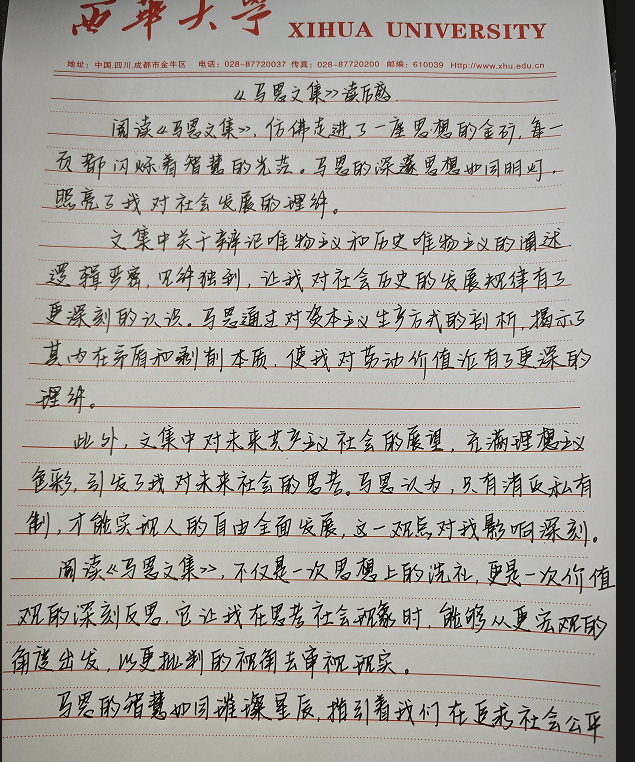 西华大学 XIHUA UNIVERSITY
地址：中国.四川.成都市金牛区 电话：028-87720037 传真：028-87720200 邮编：610039 Http://www.xhu.edu.cn
《马恩文集》读后感.
阅读《马恩文集》，仿佛走进了一座思想的金矿，每一
页都闪烁着智慧的光芒。马恩的深邃思想如同明灯，
照亮了我对社会发展的理解。
文集中关于辩证唯物主义和历史唯物主义的阐述.
逻辑严密，见解独到，让我对社会历史的发展规律有了
更深刻的认识。马恩通过对资本主义生产方式的剖析，揭示了
其内在矛盾和剥削本质，使我对劳动价值论有了更深的
理解。
此外，文集中对未来共产主义社会的展望，充满理想主义
色彩，引发了我对未来社会的思考。马恩认为，只有消灭私有
制，才能实现人的自由全面发展，这一观点对我影响深刻。
阅读《马恩文集》，不仅是一次思想上的洗礼，更是一次价值
观的深刻反思。它让我在思考社会现象时，能够从更宏观的
角度出发，以更批判的视角去审视现实。
马恩的智慧如同璀璨星辰，指引着我们在追求社会公平